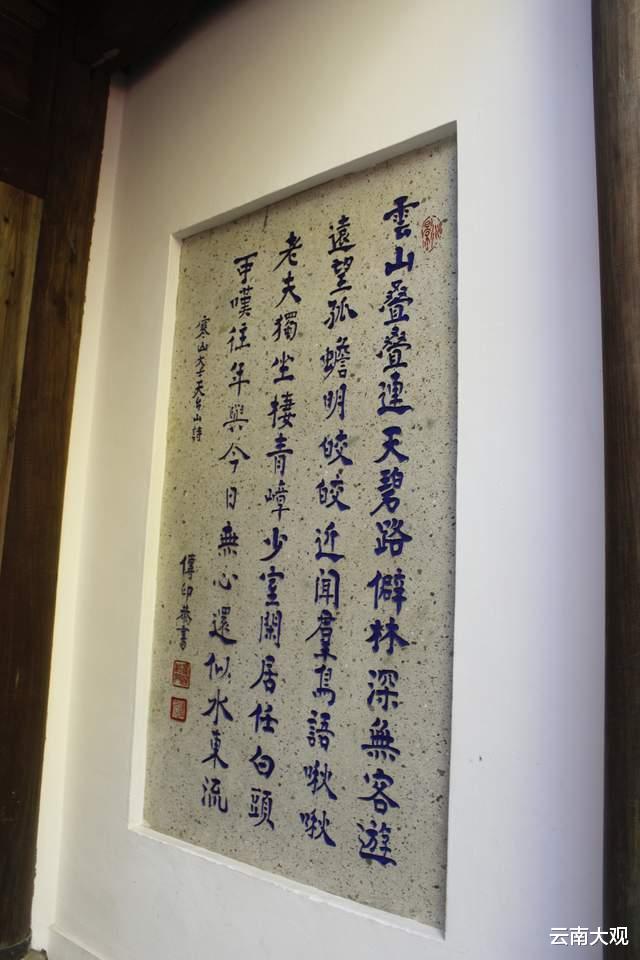 雲山叠叠連天碧路僻林深無客遊
遠望孤蟾明皎皎近聞羣鳥語啾啾
老夫獨坐棲青嶂少室閑居任白頭
可嘆往年與今日無心還似水東流
寒山大士天台山詩
傳印恭書
云南大观